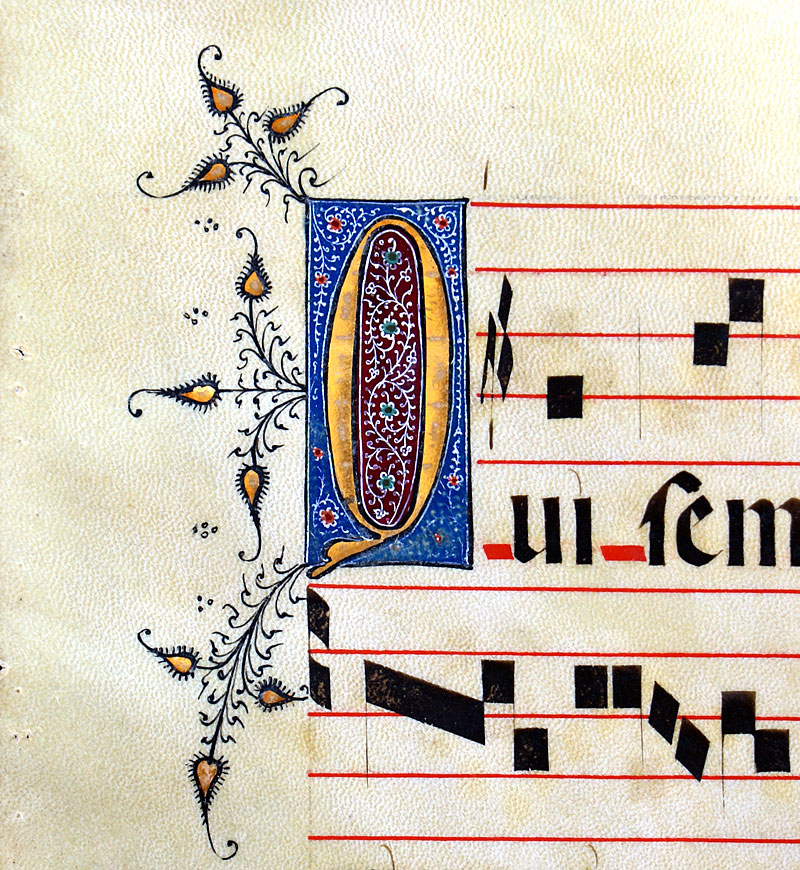 Qui sem